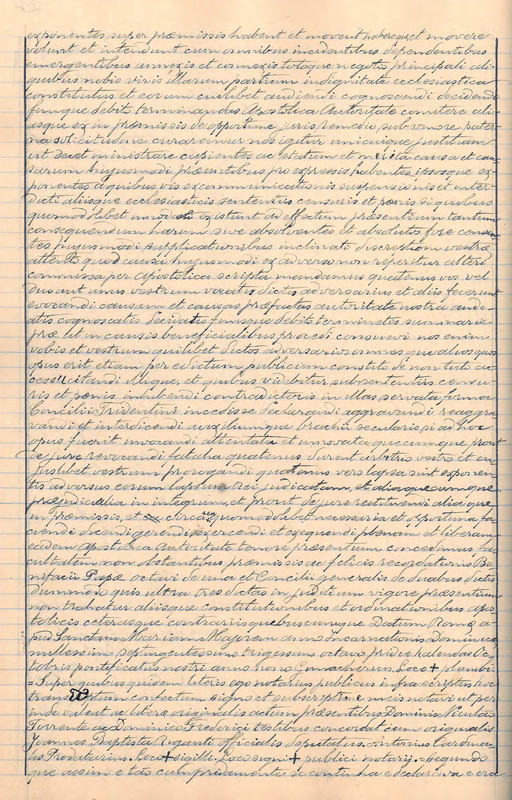 exponentes super præmissis habent et movent habereque et movere
volunt et intendunt cum omnibus incidentibus dependentibus
emergentibus annexis et connexis totoque negotio principali ali-
quibus nobis viris illarum partium in dignitate ecclesiastica
constitutis et eorum cuilibet audiendi cognoscendi decidendo
fineque debito terminandas Apostolica Autoritate comitere ali-
asque ex in præmissis de opportune juris remedio sub venore pater-
na solicitudine curaremur nos igitur unicuique justitiam
ut decet ministrare cupientes ac statum et merita causa et cau-
sarum hujusmodi præsentibus pro expressis habentes ipsosque ex-
ponentes a quibusvis excommunicationis suspensionis et inter-
dicti aliisque ecclesiasticis sententiis censuris et penis si quibus
quomodolibet existunt ad effectum præsentium tantum
consequendum harum sive absolventes et absolutos fore
hujusmodi supplicationibus inclinati discretioni vestræ
attento quod causa hujusmodi ex adverso non reperitur alteri
commissa per apostolica scripta mandamus quatenus vos vel
duo aut unus vestrum vocatis dictis adversariis et aliis
evocandi causam et causas præfactas autoritate nostra audi-
atis cognoscatis decidatis fineque debito terminetis summarie
præ ut in causis beneficialibus procedi consuevi nos enim
vobis et vestrum quilibet dictos adversarios omnesque alios quos
opus erit etiam per edictum publicum constito de non tuto ac-
cessu citandi usque, et quibus videbitur sub sententiis censu-
ris et penis inhibendi contradictoris in illas servata forma
Concilii Tridentini incedisse declarandi aggravandi reaggra-
vandi et interdicendi auxiliumque brachii secularis si ad hoc
opus fuerit invocandi attentata et innovata quecumque prout
de jure revocandi fatalia quatenus durent arbitrio vestro et cu-
juslibet vestrum prorogandi quatenus vero lapsa sint exponen-
tes adversus eorum lapsum rei judicatam, et alia quecumque
præjudicalia in integrum, et prout de jure restituendi alia que
in præmissis, et circa ea quomodolibet necessaria et oportuna fa-
ciendi dicendi gerendi exercendi et exequendi plenam et liberam
eadem Apostolica Autoritate tenore præsentium concedimus fa-
cultatem non obstantibus præmissis ac felicis recordationis Bo-
nifacii Papæ octavi de una et Concilii generalis de duabus dietis
dummodo quis ultra tres dietas in juditium vigore præsentium
non trahatur aliisque constitutionibus et ordinationibus apos-
tolicis ceterisque contrariis quibuscumque Datum Romæ a-
pud Sanctam Mariam Majorem anno Incarnationis Dominicæ
millesimo septingentesimo trigesimo octavo pridie kalendas Oc-
tobris pontificatus nostri anno nono Loco + plumbi
= Super quibus quidem literis ego notarius publicus infrascriptus hoc
transumptum confectum signo et subscriptione meis notavi ut per
inde valeat ac literæ originalis actum præsentibus Dominis Niculao
Torrente ac Dominico Frederici testibus concordat cum originalis
Joannes Baptista Riganti officialis deputatus = Antonius Cardina-
lis Prodatarius. Loco + sigilli. Loco signi + publici notarij = Segundo
que assim e tão cumpridamente se continha e declarava e era